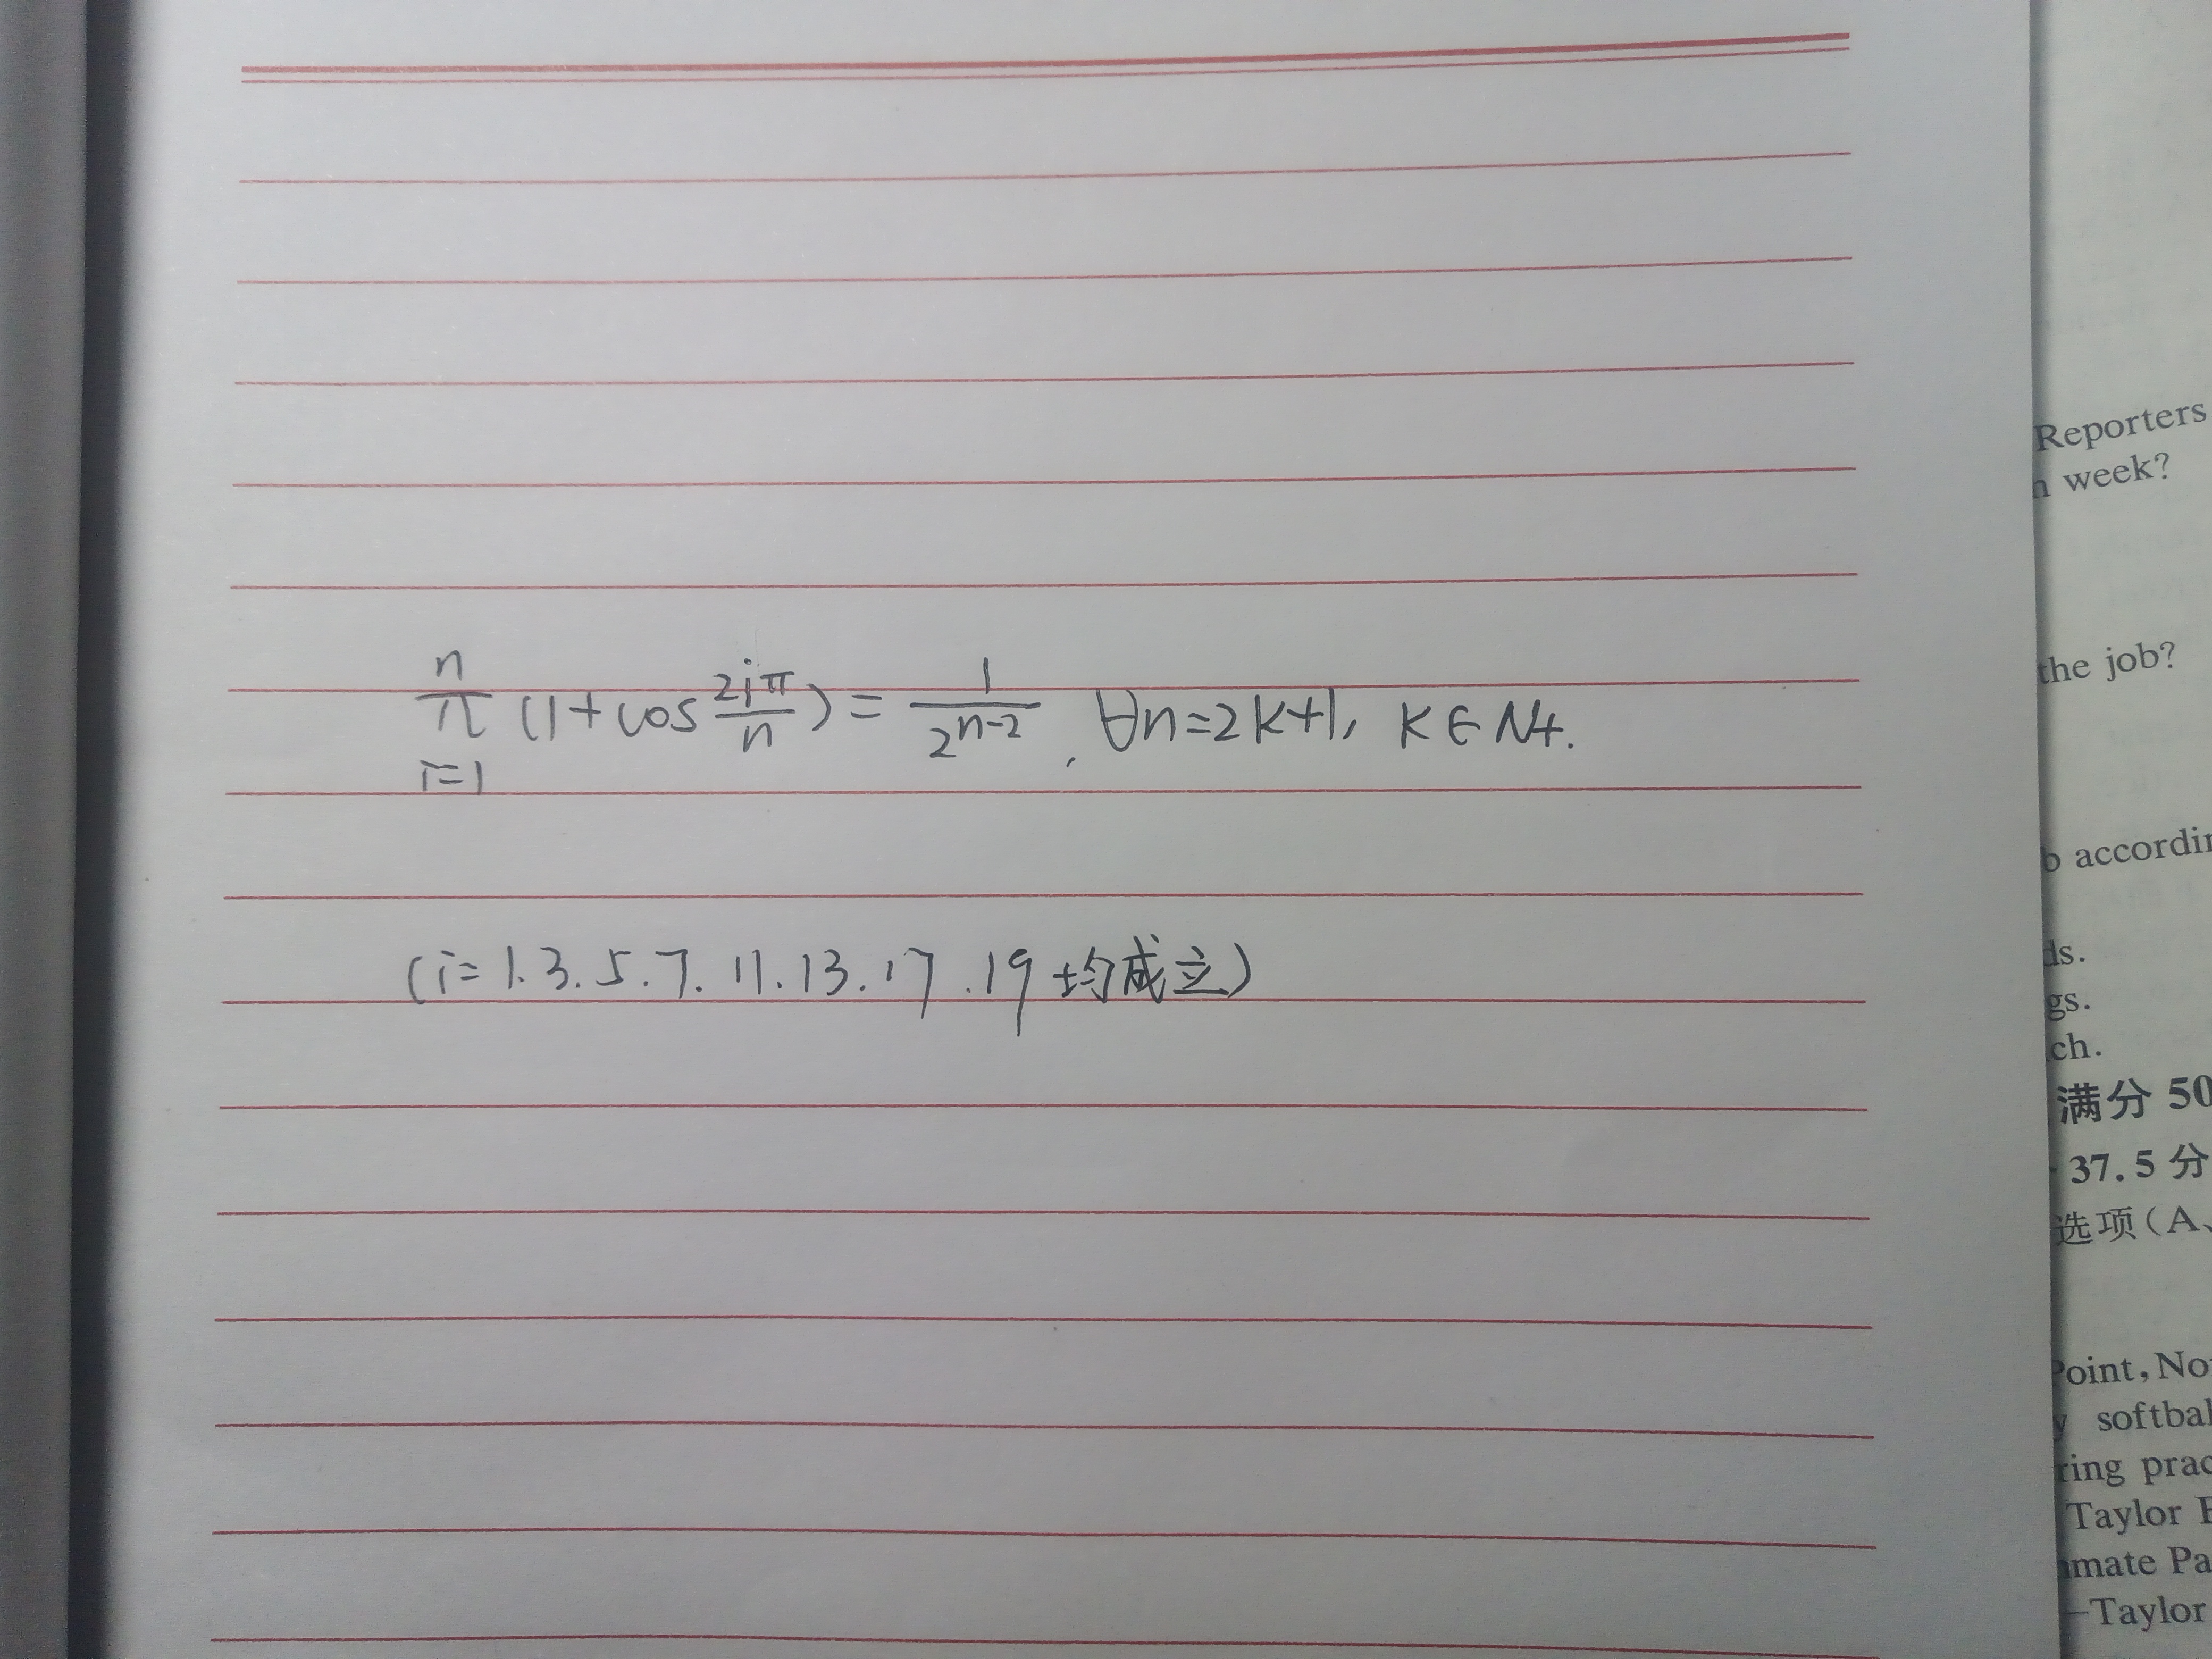 n
π (1+cos 2iπ/n) = 1/2^{n-2}, ∀n=2k+1, k∈N+.
i=1
(i=1.3.5.7.11.13.17.19均成立)
Reporters
week?
the job?
accordin
ds.
gs.
ch.
满分 50
37.5 分
选项(A、
Point,No
softbal
ring prac
Taylor
mate Pa
—Taylor